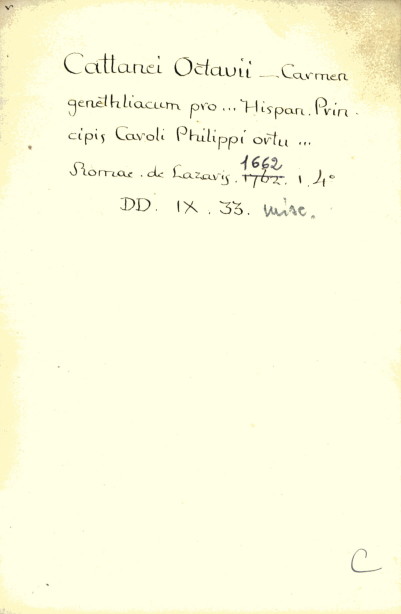 Cattanei Octavii — Carmen
genethliacum pro ... Hispan. Prin.
cipis Caroli Philippi ortu ...
Romae . de Lazaris . 1662 1762 . 1 . 4°
DD . IX . 33. misc.
C